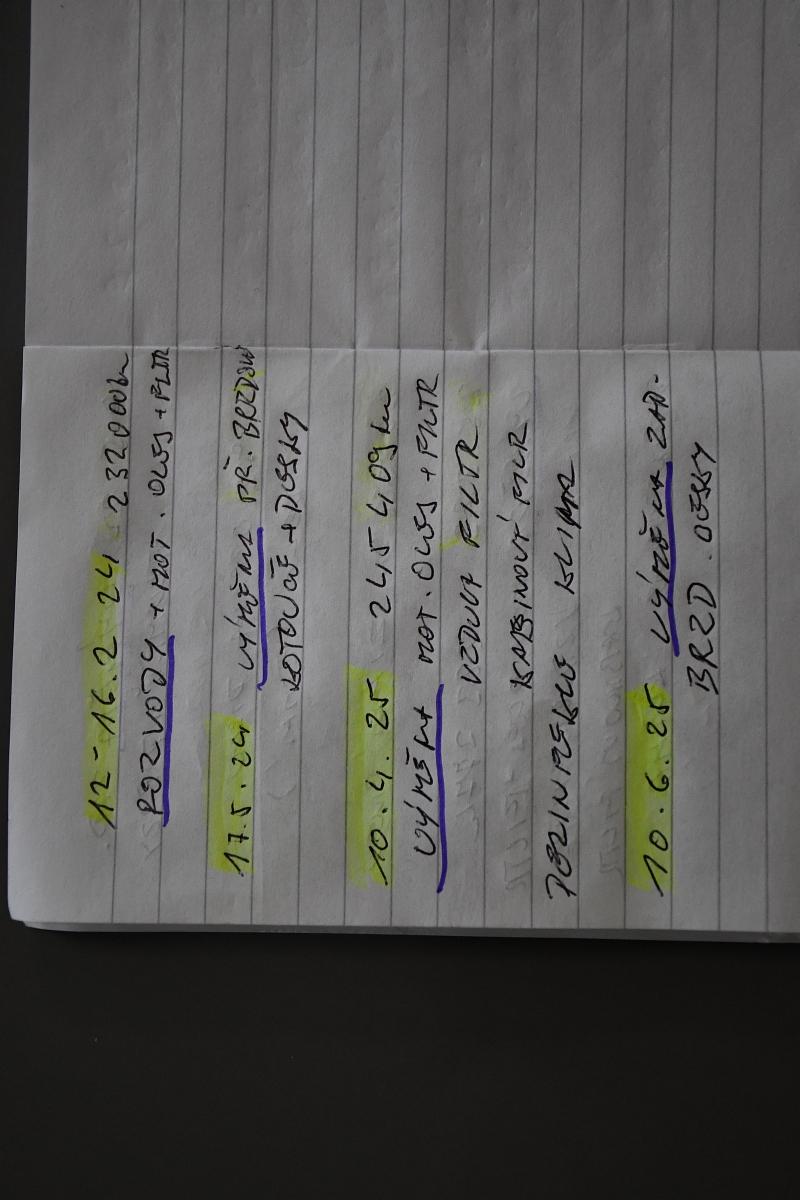 12-16.2 24 232000km
ROZVODY + MOT. OLEJ + FILTR
17.5.24 VÝMĚNA PŘ. BRZDOV
KOTOUČŮ + DESKY
10.4.25 245409 km
VÝMĚNA MOT. OLEJ + FILTR
VZDUCH FILTR
KABINOVÝ FILR
DEZINFEKCE KLIMA
10.6.25 VÝMĚNA ZAD.
BRZD. DESKY